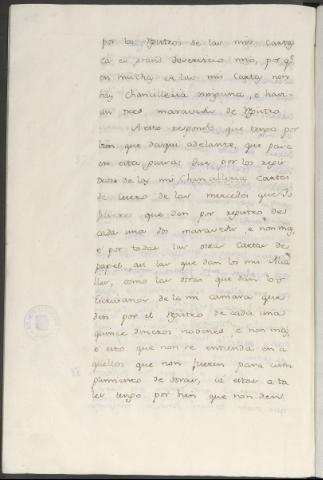 por los Rexitros de las mis Cartas
ca es grand deservicio mio, por q.e
en muchas de las mis Cartas non
hay Chancilleria ninguna, e han
un tres maravedis de Rexitro
A esto respondo que tengo por
bien que daqui adelante, que para
en esta guisa: que por los regis
de las mis Chancilleria Cartas
de cuero de las mercedes que Yo
ficiere que den por registro de
cada una dos maravedis, e non mas,
e por todas las otras Cartas de
papel, asi las que dan los mis Alcal
les, como las otras que dan los
Escrivanos de la mi camara que
den por el Rexitro de cada una
quince dineros novenes, e non mas
e esto que non se entienda en a
quellos que non fueren para
de dorar, ca estas a ta
les tengo por bien que non den